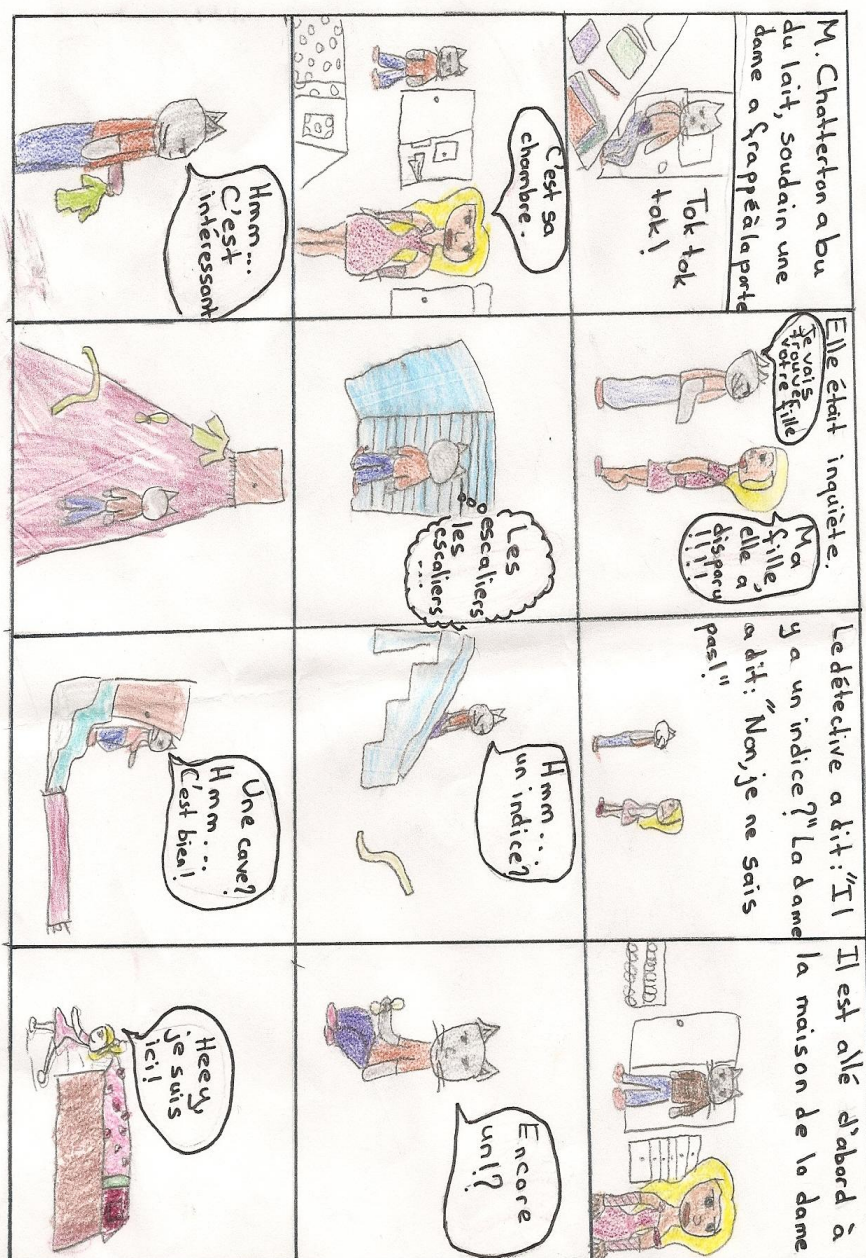 M. Chatterton a bu
du lait, soudain une
dame a frappé à la porte
Tok tok
tok!
Elle était inquiète.
Je vais
trouver
votre fille
Ma
fille,
elle a
disparu
!!!!
Le détective a dit: "Il
y a un indice?" La dame
a dit: "Non, je ne sais
pas!"
Il est allé d'abord à
la maison de la dame
C'est sa
chambre.
Les
escaliers
les
escaliers
...
Hmm...
un indice?
Encore
un!?
Hmm...
C'est
intéressant
Une cave?
Hmm...
C'est bien!
Heey
je suis
ici!